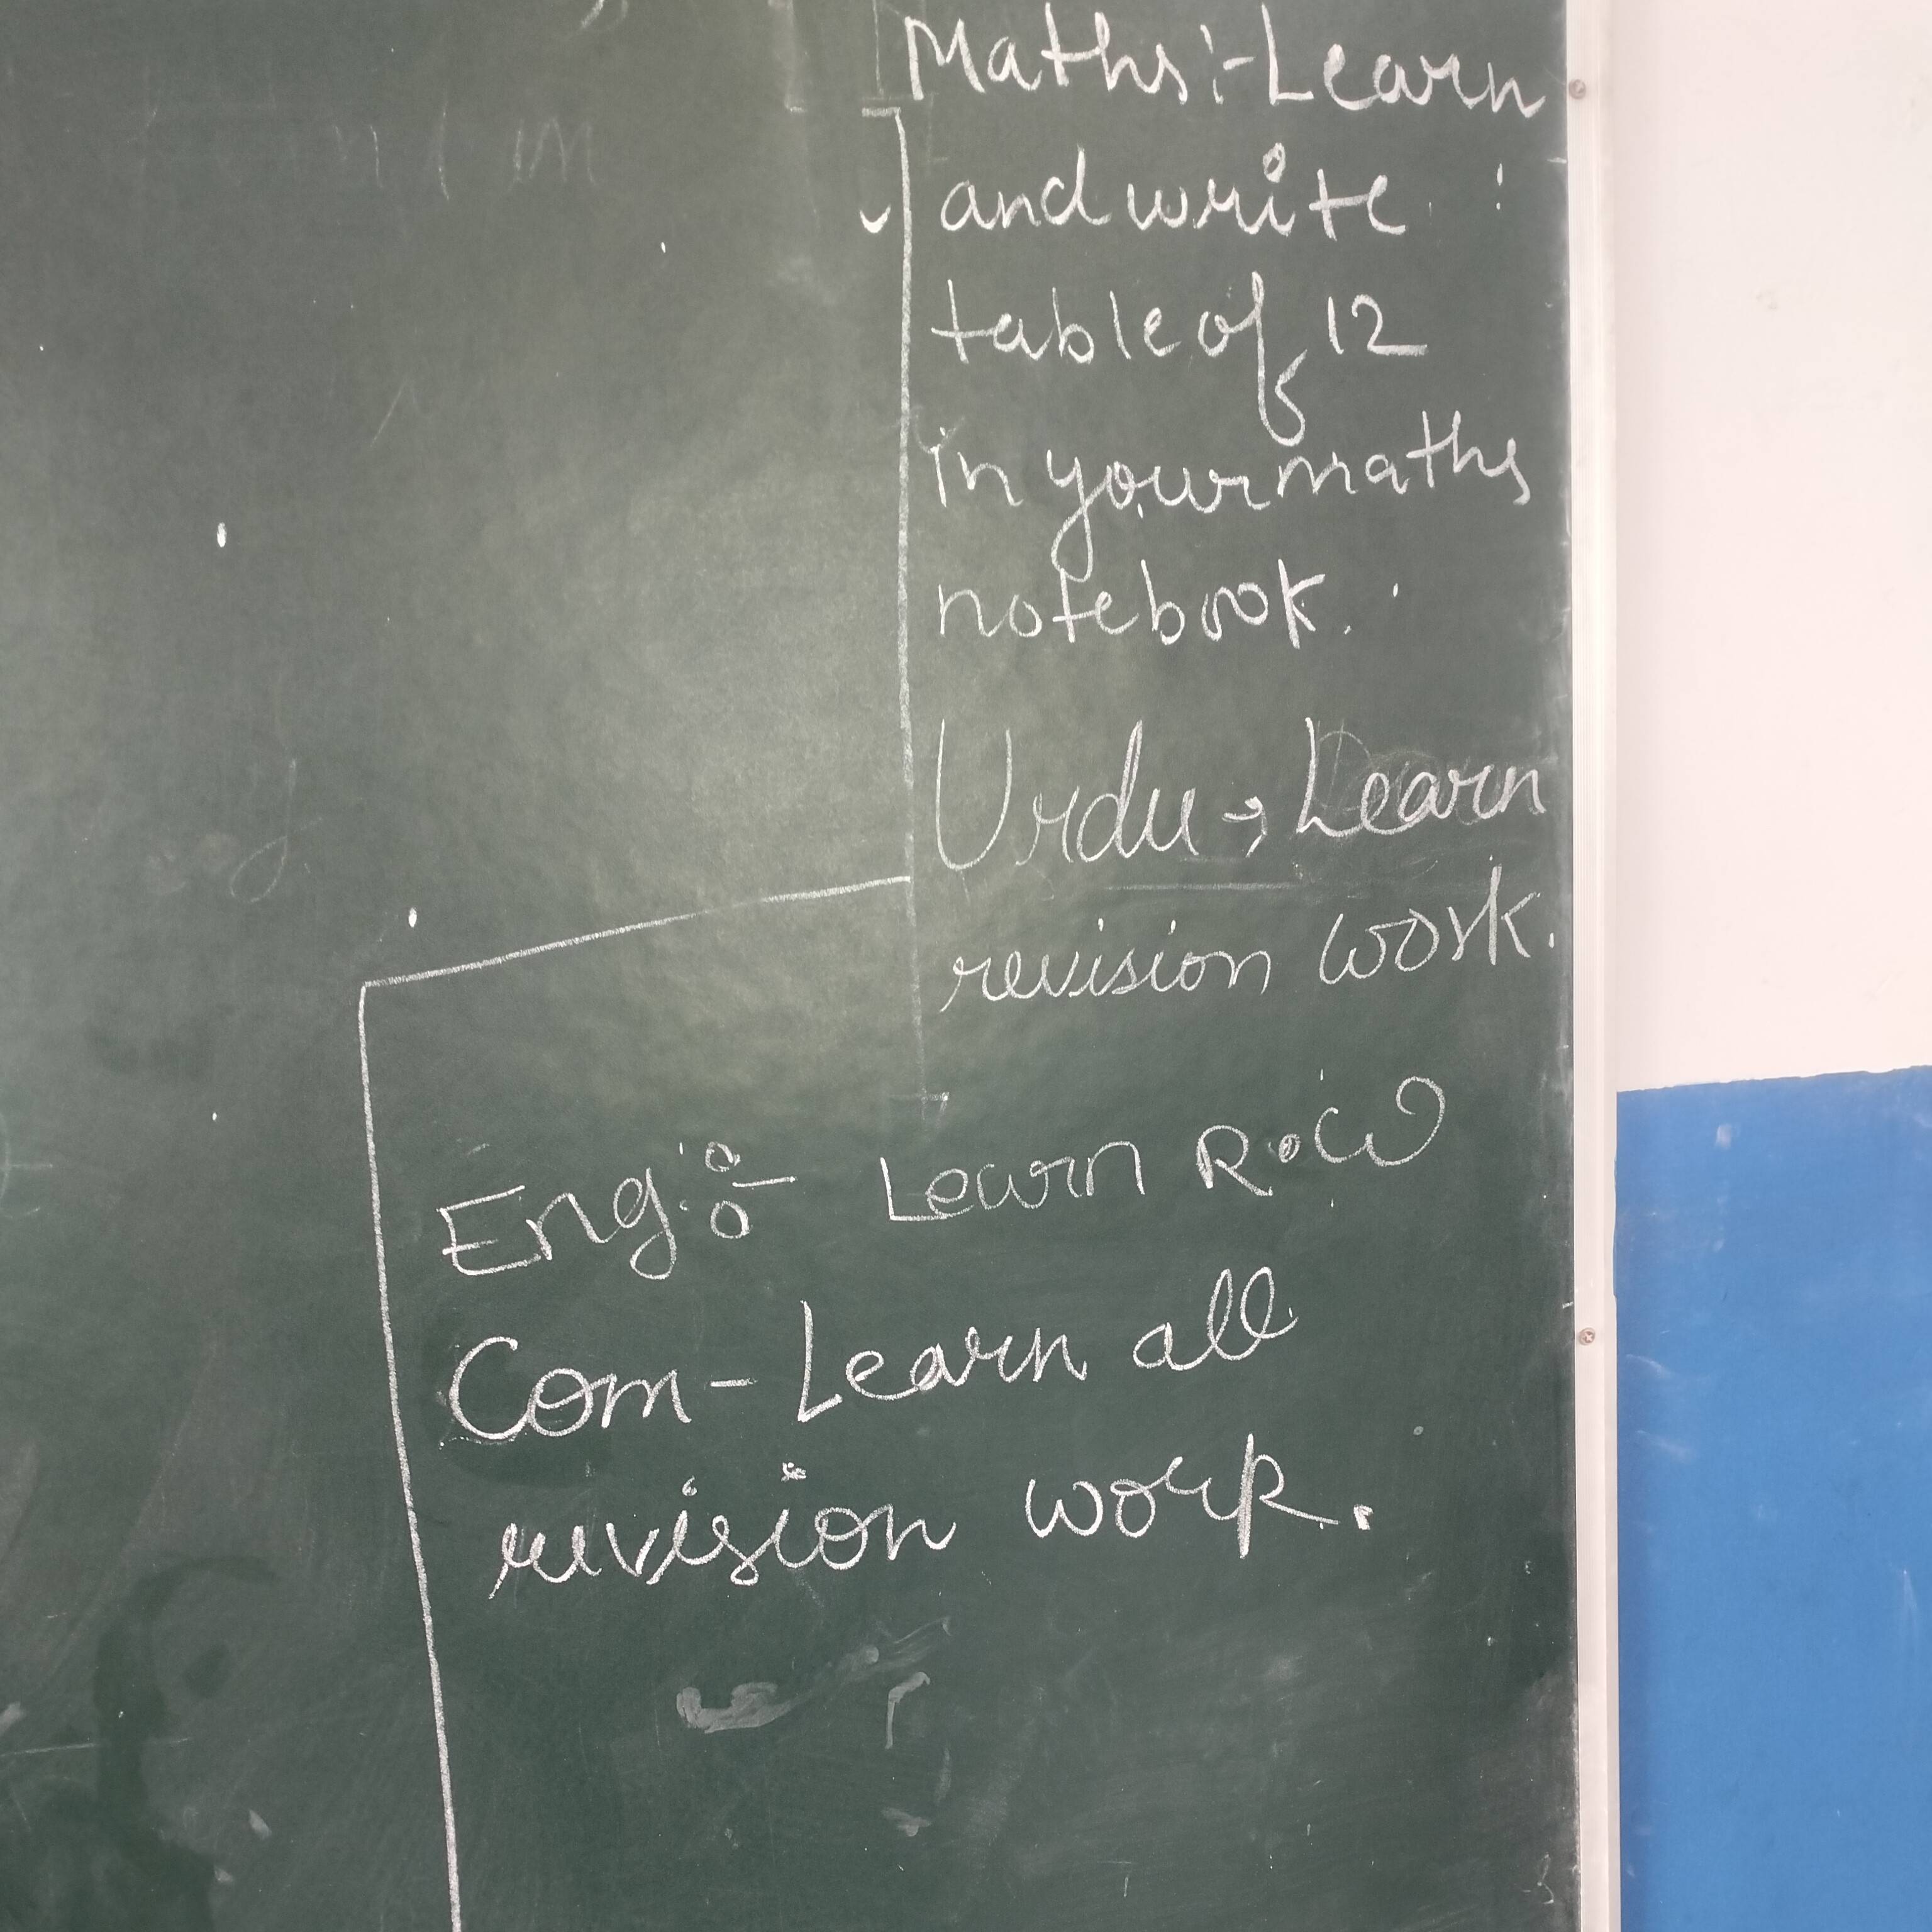 Maths :- Learn
and write
table of 12
in your maths
notebook.
Urdu → Learn
revision work.
Eng :- Learn R.W
Com - Learn all
revision work.